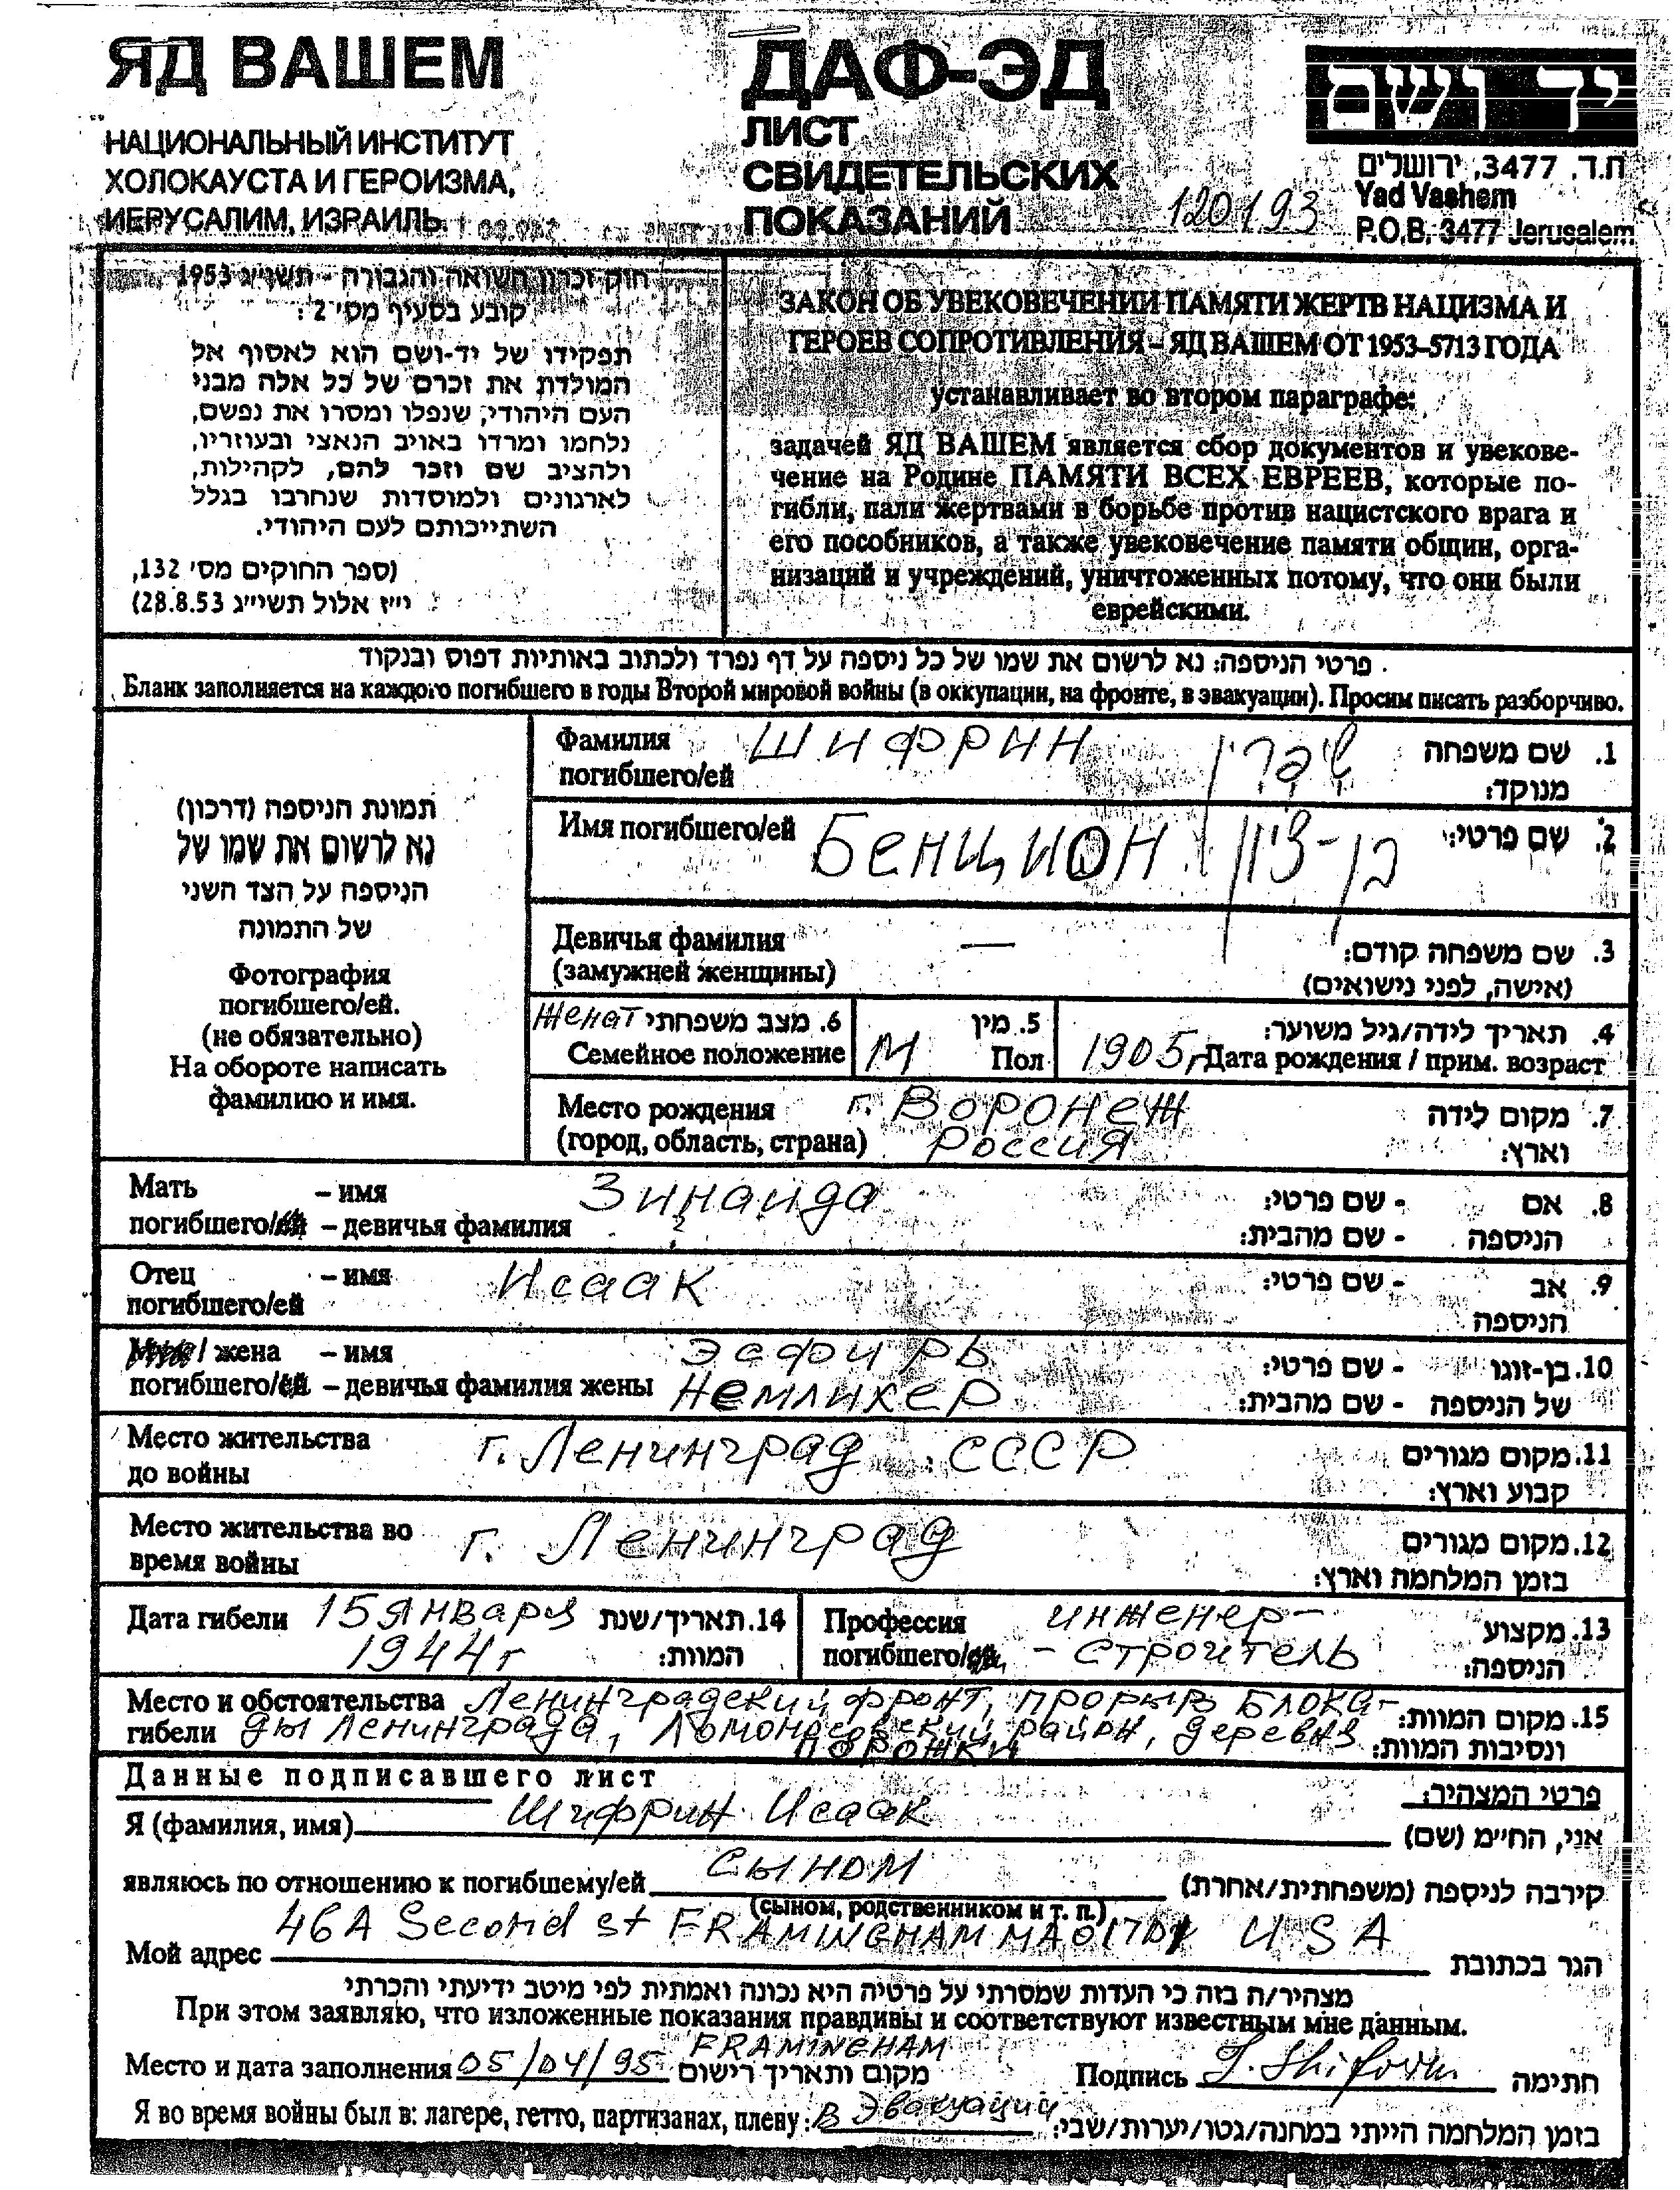 ЯД ВАШЕМ
НАЦИОНАЛЬНЫЙ ИНСТИТУТ
ХОЛОКАУСТА И ГЕРОИЗМА,
ИЕРУСАЛИМ, ИЗРАИЛЬ.
ДАФ-ЭД
ЛИСТ
СВИДЕТЕЛЬСКИХ
ПОКАЗАНИЙ
120193
יד ושם
ת.ד. 3477, ירושלים
Yad Vashem
P.O.B. 3477 Jerusalem
חוק זכרון השואה והגבורה - תשי״ג 1953
קובע בסעיף מס׳ 2:
תפקידו של יד-ושם הוא לאסוף אל
המולדת את זכרם של כל אלה מבני
העם היהודי, שנפלו ומסרו את נפשם,
נלחמו ומרדו באויב הנאצי ובעוזריו,
ולהציב שם וזכר להם, לקהילות,
לארגונים ולמוסדות שנחרבו בגלל
השתייכותם לעם היהודי.
(ספר החוקים מס׳ 132,
י״ז אלול תשי״ג 28.8.53)
ЗАКОН ОБ УВЕКОВЕЧЕНИИ ПАМЯТИ ЖЕРТВ НАЦИЗМА И
ГЕРОЕВ СОПРОТИВЛЕНИЯ – ЯД ВАШЕМ ОТ 1953-5713 ГОДА
устанавливает во втором параграфе:
задачей ЯД ВАШЕМ является сбор документов и увекове-
чение на Родине ПАМЯТИ ВСЕХ ЕВРЕЕВ, которые по-
гибли, пали жертвами в борьбе против нацистского врага и
его пособников, а также увековечение памяти общин, орга-
низаций и учреждений, уничтоженных потому, что они были
еврейскими.
פרטי הניספה: נא לרשום את שמו של כל ניספה על דף נפרד ולכתוב באותיות דפוס ובנקוד
Бланк заполняется на каждого погибшего в годы Второй мировой войны (в оккупации, на фронте, в эвакуации). Просим писать разборчиво.
תמונת הניספה (דרכון)
נא לרשום את שמו של
הניספה על הצד השני
של התמונה
Фотография
погибшего/ей.
(не обязательно)
На обороте написать
фамилию и имя.
Фамилия ШИФРИН שיפרין 1. שם משפחה
погибшего/ей מנוקד:
Имя погибшего/ей Бенцион בן-ציון 2. שם פרטי:
Девичья фамилия — 3. שם משפחה קודם:
(замужней женщины) (אישה, לפני נישואים)
Женат 6. מצב משפחתי 5. מין 4. תאריך לידה/גיל משוער:
Семейное положение М Пол 1905г Дата рождения / прим. возраст
Место рождения г. Воронеж 7. מקום לידה
(город, область, страна) Россия וארץ:
Мать – имя Зинаида 8. אם - שם פרטי:
погибшего/ей – девичья фамилия ? הניספה - שם מהבית:
Отец – имя Исаак 9. אב - שם פרטי:
погибшего/ей הניספה
Муж / жена – имя Эсфирь 10. בן-זוגו - שם פרטי:
погибшего/ей – девичья фамилия жены Немлихер של הניספה - שם מהבית:
Место жительства г. Ленинград СССР 11. מקום מגורים
до войны קבוע וארץ:
Место жительства во г. Ленинград 12. מקום מגורים
время войны בזמן המלחמה וארץ:
Дата гибели 15 января 14. תאריך/שנת Профессия инженер- 13. מקצוע
1944г המוות: погибшего/ей - строитель הניספה:
Место и обстоятельства Ленинградский фронт, прорыв блока- 15. מקום המוות:
гибели ды Ленинграда, Ломоносовский район, деревня ונסיבות המוות:
Порожки
Данные подписавшего лист פרטי המצהיר:
Я (фамилия, имя) Шифрин Исаак אני, החי״מ (שם)
являюсь по отношению к погибшему/ей сыном קירבה לניספה (משפחתית/אחרת)
(сыном, родственником и т. п.)
Мой адрес 46A Second st FRAMINGHAM MA 01701 USA הגר בכתובת
מצהיר/ה בזה כי העדות שמסרתי על פרטיה היא נכונה ואמתית לפי מיטב ידיעתי והכרתי
При этом заявляю, что изложенные показания правдивы и соответствуют известным мне данным.
FRAMINGHAM
Место и дата заполнения 05/04/95 מקום ותאריך רישום Подпись I. Shifrin חתימה
Я во время войны был в: лагере, гетто, партизанах, плену: в Эвакуации בזמן המלחמה הייתי במחנה/גטו/יערות/שבי: